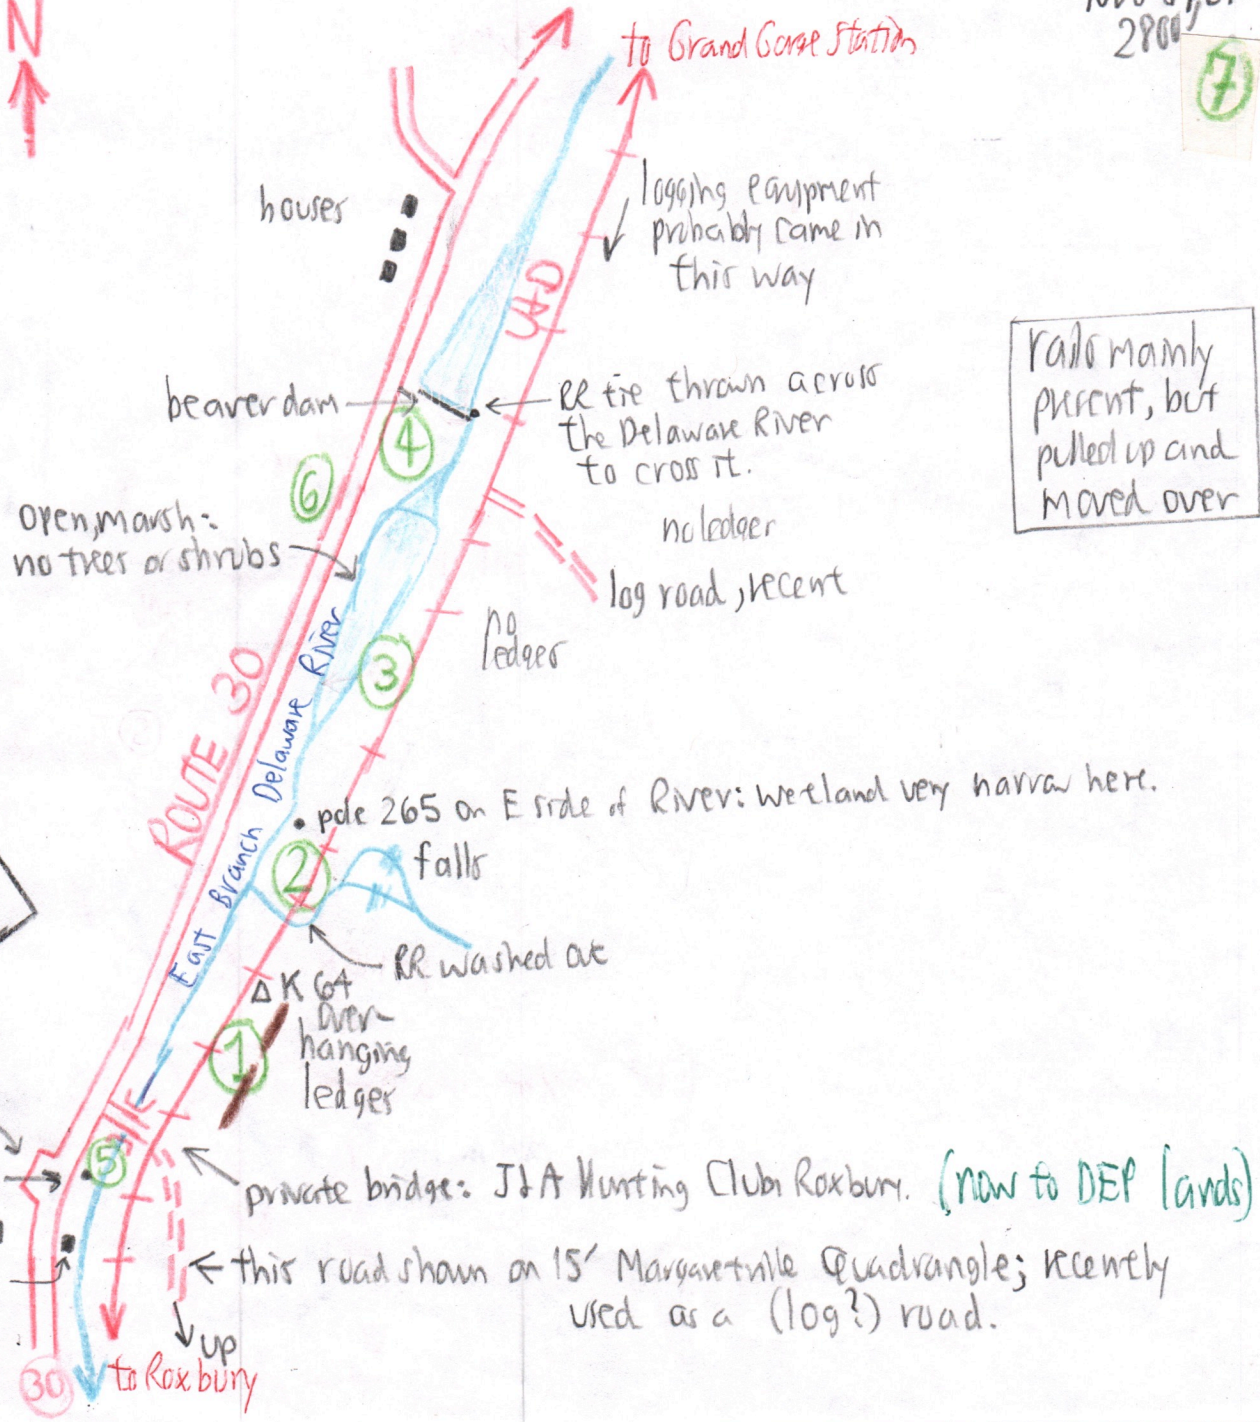 N
to Grand Gorge Station
2800'
7
houses
logging equipment
probably came in
this way
U+D
rails mainly
present, but
pulled up and
moved over
beaver dam
RR tie thrown across
the Delaware River
to cross it.
4
6
open, marsh:
no trees or shrubs
no ledges
log road, recent
no
ledges
3
ROUTE 30
East Branch Delaware River
pole 265 on E side of River: wetland very narrow here.
2
falls
RR washed out
Δ K 64
over-
hanging
ledges
1
5
private bridge: J&A Hunting Club, Roxbury. (now to DEP lands)
this road shown on 15' Margaretville Quadrangle; recently
used as a (log?) road.
up
30
to Roxbury